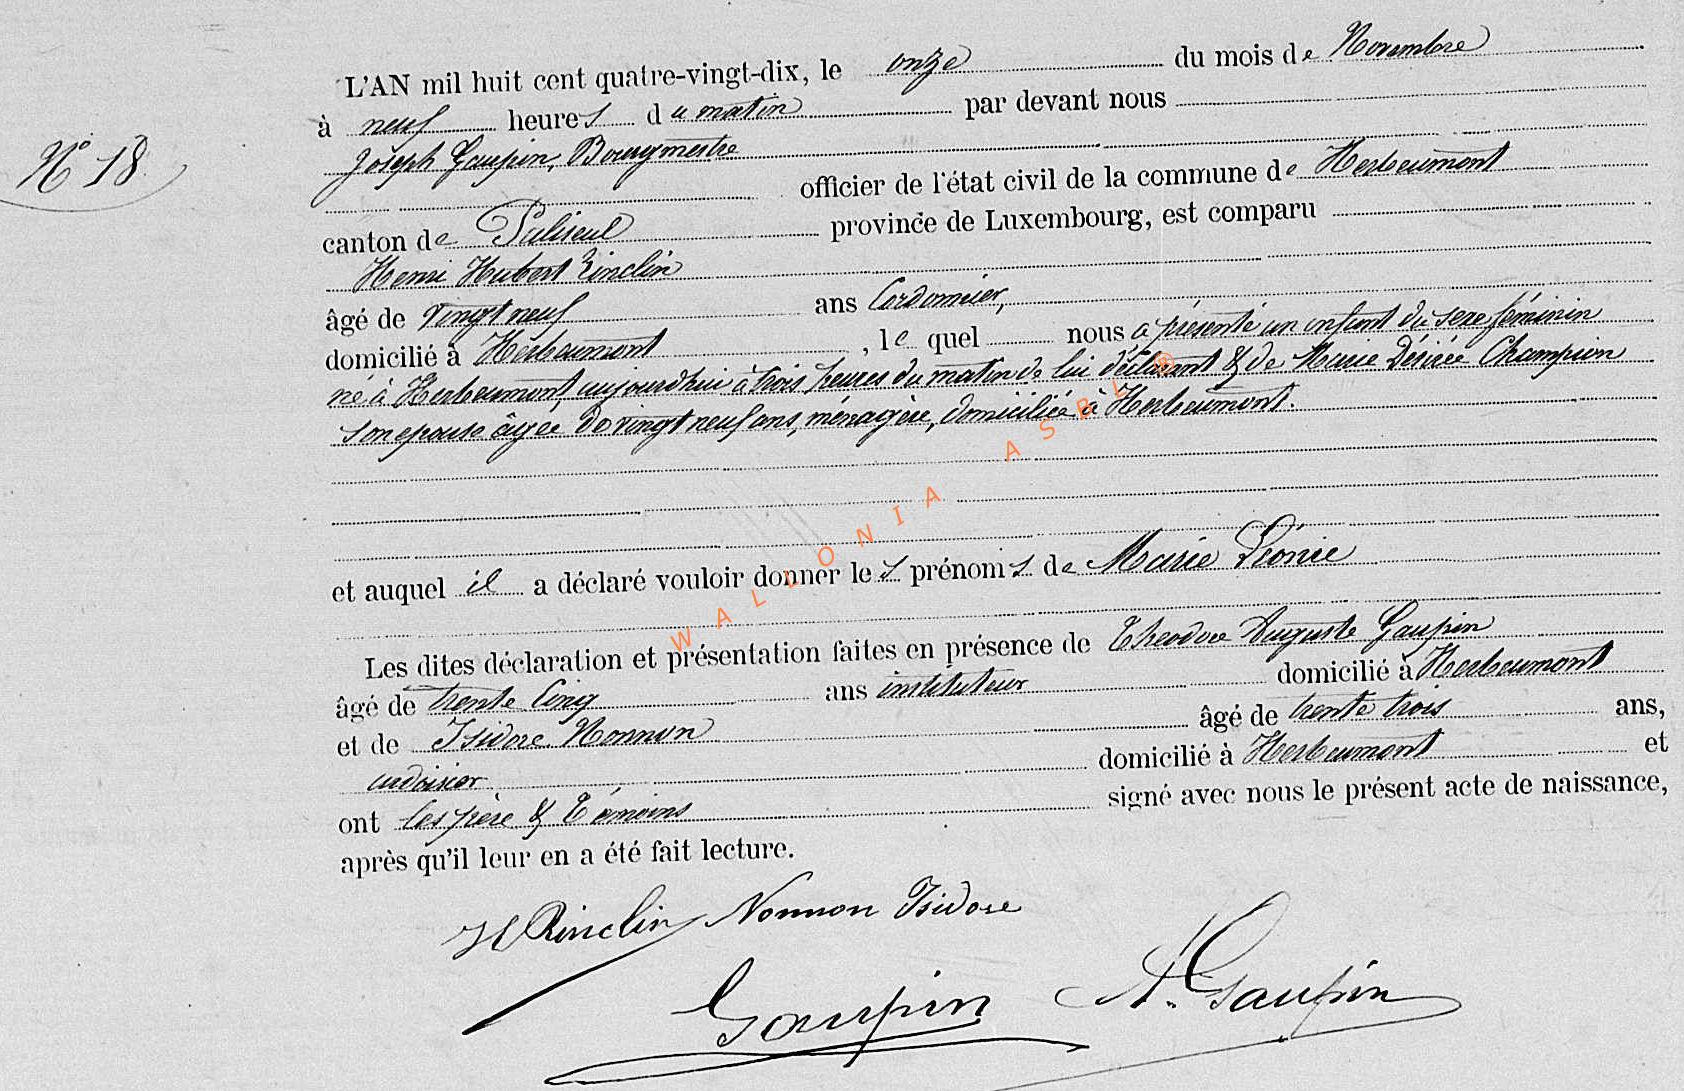 L'AN mil huit cent quatre-vingt-dix, le onze du mois de Novembre
à neuf heures du matin par devant nous
N° 18.
Joseph Gaupin, Bourgmestre
officier de l'état civil de la commune de Herbeumont
canton de Paliseul province de Luxembourg, est comparu
Henri Hubert Rinclin
âgé de vingt neuf ans Cordonnier,
domicilié à Herbeumont, lequel nous a présenté un enfant du sexe féminin
né à Herbeumont, aujourdhui à trois heures du matin de lui déclarant & de Marie Désirée Champion
son epouse âgée de vingt neuf ans, ménagère, domiciliée à Herbeumont.
et auquel il a déclaré vouloir donner les prénoms de Marie Léonie
Les dites déclaration et présentation faites en présence de Théodore Auguste Gaupin
âgé de trente cinq ans instituteur domicilié à Herbeumont
et de Isidore Nonnon âgé de trente trois ans,
ardoisier domicilié à Herbeumont et
ont les père & témoins signé avec nous le présent acte de naissance,
après qu'il leur en a été fait lecture.
H Rinclin Nonnon Isidore
Gaupin A. Gaupin
WALLONIA ASBL ®